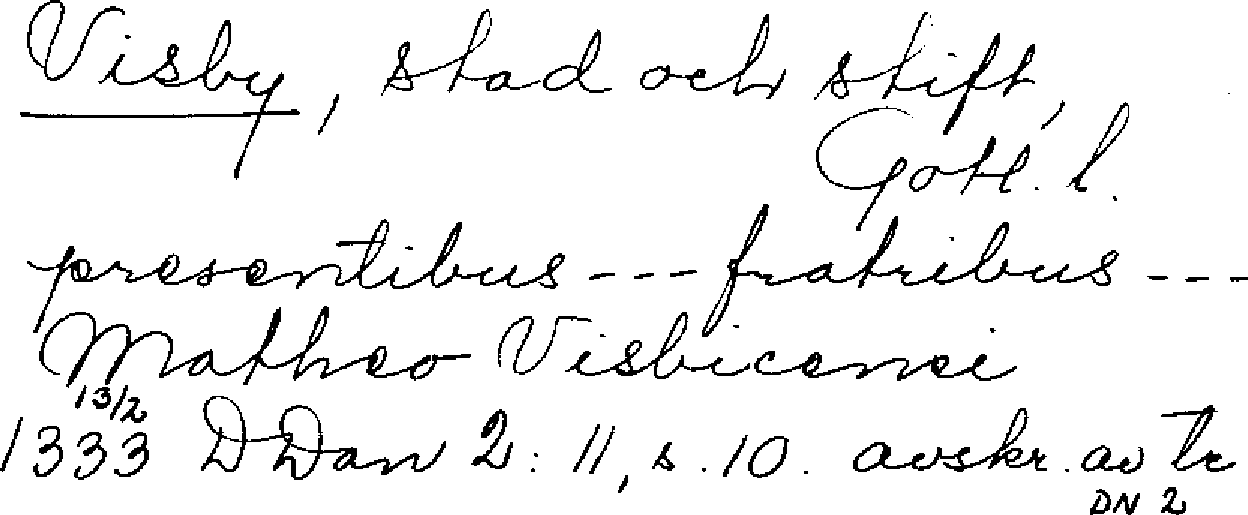 Visby, stad och skift,
Gotl. l.
presentibus --- fratribus ---
Matheo Visbicensi
13/2
1333 DDan 2: 11, s. 10. avskr. av tr
DN 2